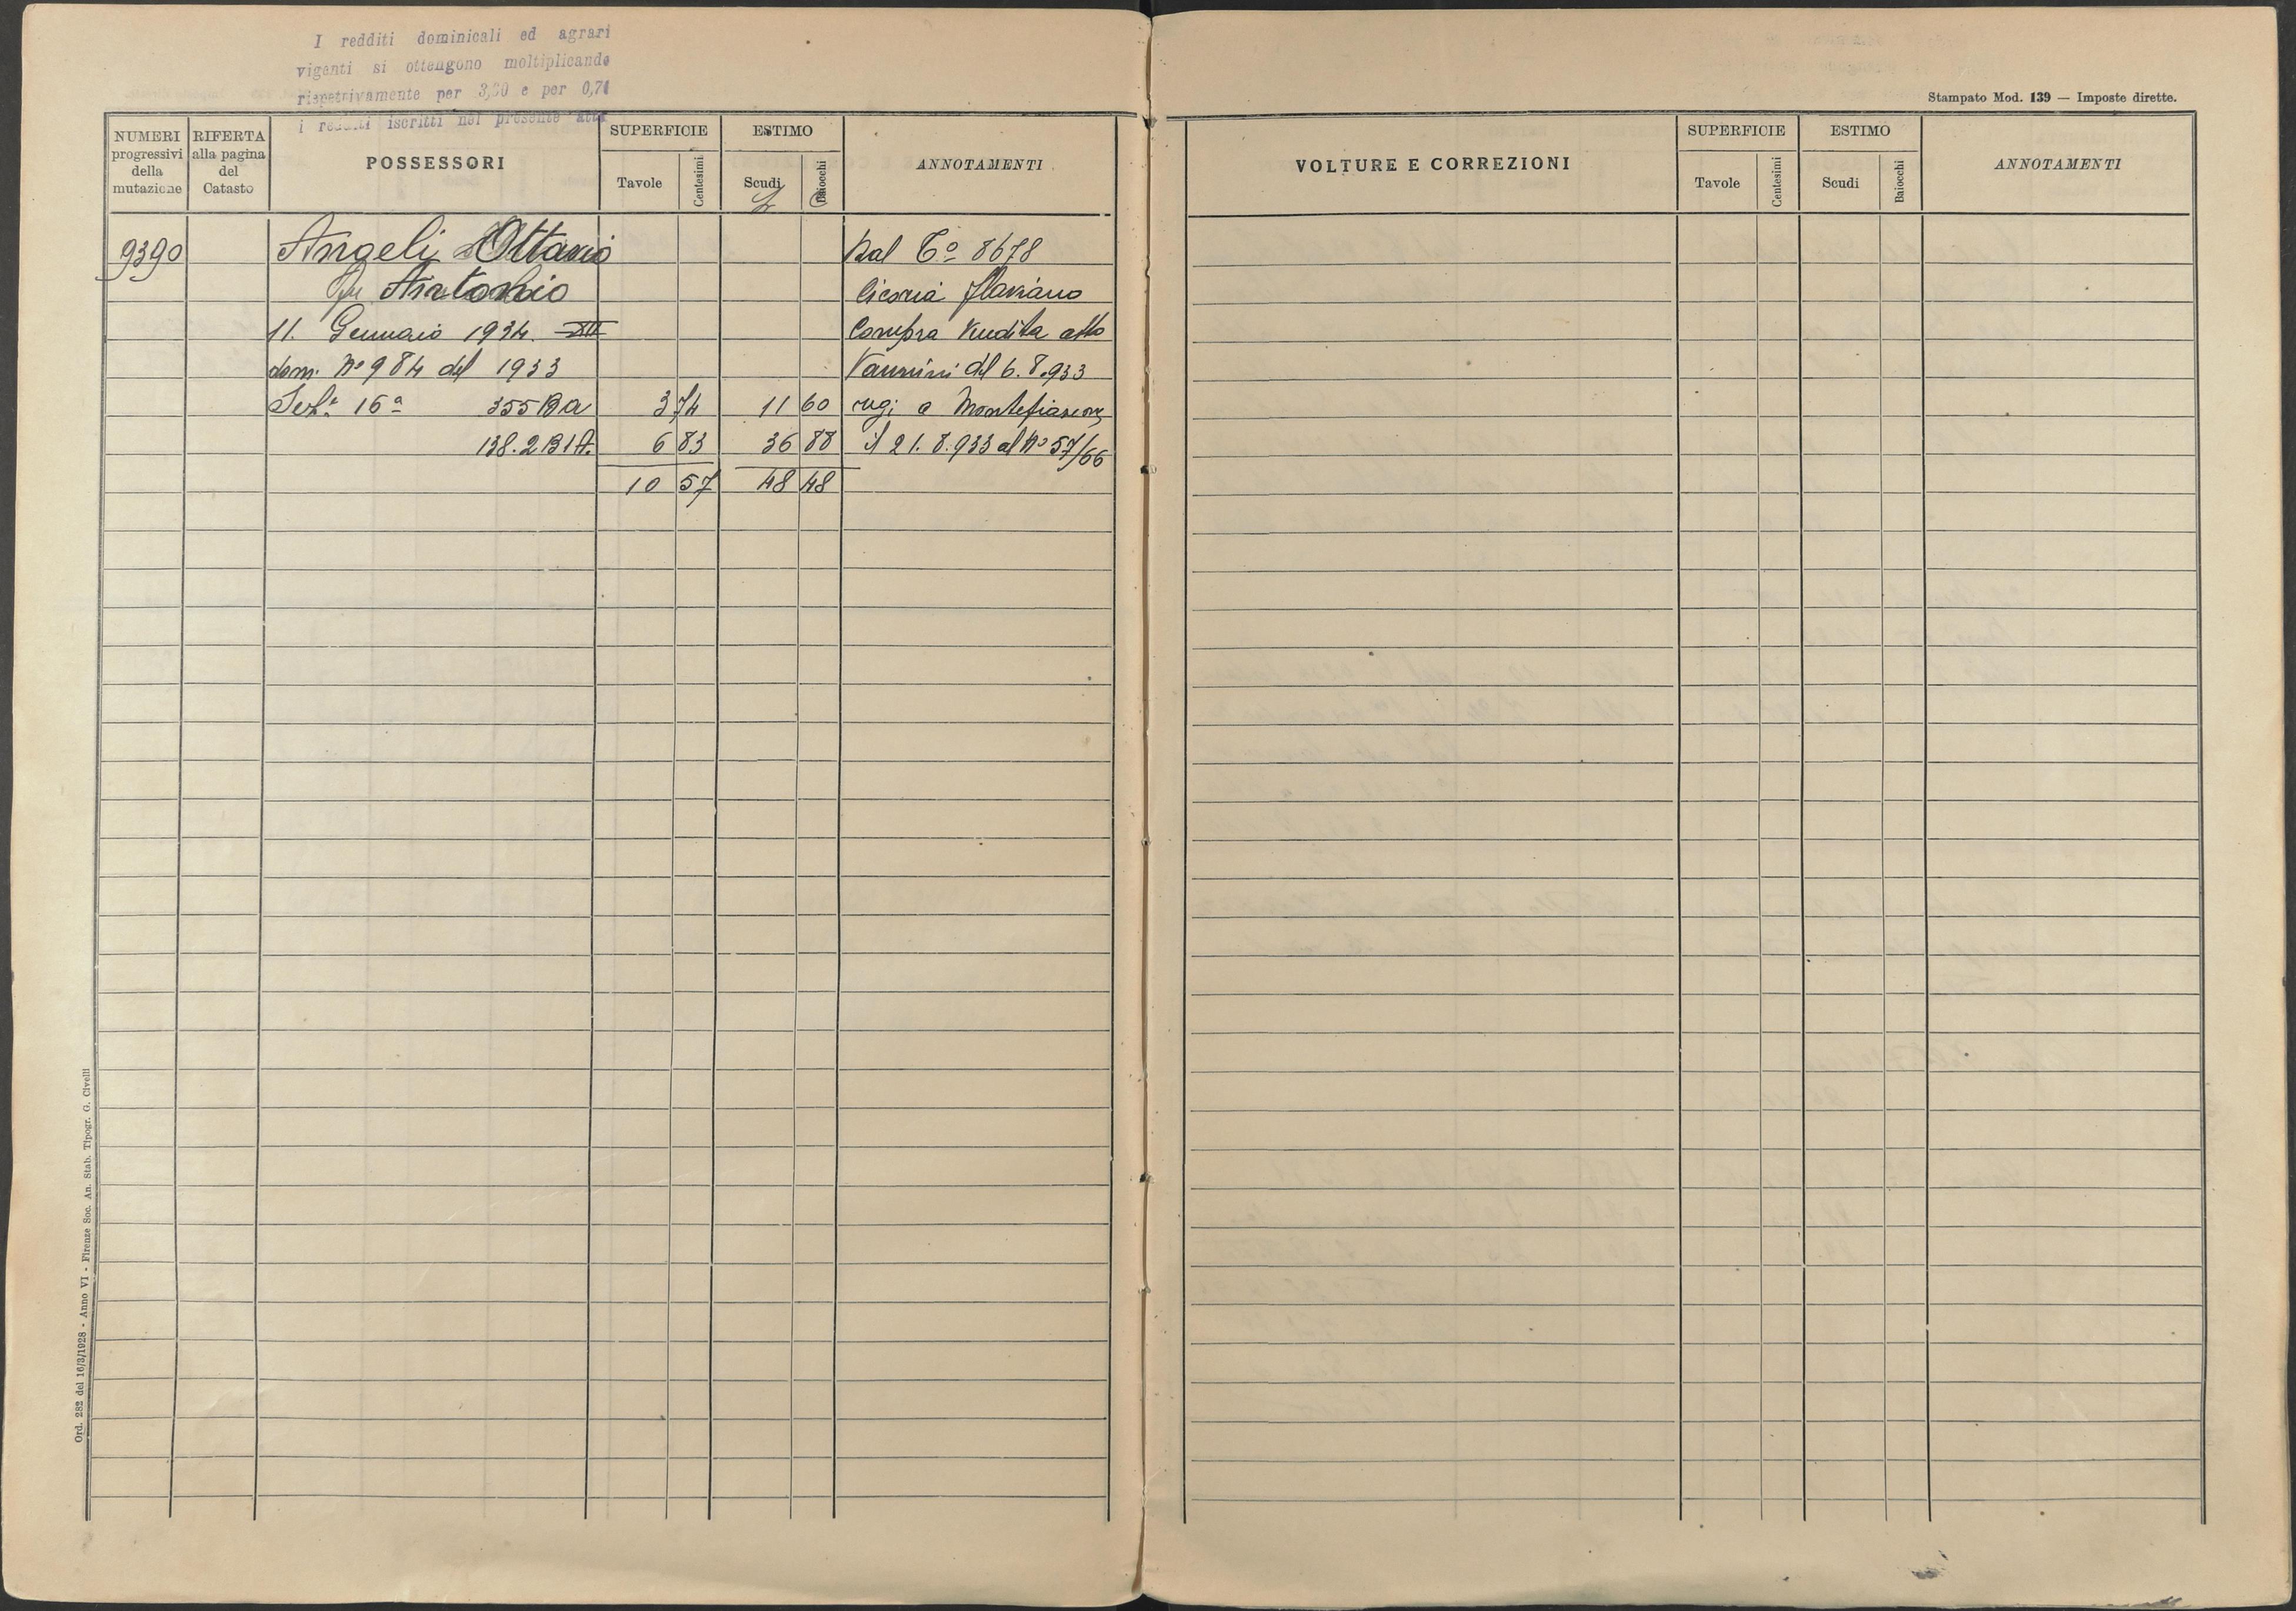 I redditi dominicali ed agrari
vigenti si ottengono moltiplicando
rispettivamente per 3,30 e per 0,71
i redditi iscritti nel presente atto
Stampato Mod. 139 — Imposte dirette.
NUMERI progressivi della mutazione
RIFERTA alla pagina del Catasto
POSSESSORI
SUPERFICIE
Tavole
Centesimi
ESTIMO
Scudi
Baiocchi
ANNOTAMENTI
VOLTURE E CORREZIONI
SUPERFICIE
Tavole
Centesimi
ESTIMO
Scudi
Baiocchi
ANNOTAMENTI
9390 Angeli Ottavio Dal C° 8678
fu Antonio Flaviano
11. Gennaio 1934. XII Compra Vendita atto
dom. N° 984 del 1933 Vannini del 6.8.933
Sez. 16ª 355 B a 3 74 11 60 reg: a Montefiascone
138.2 B 1 A. 6 83 36 88 il 21.8.933 al N° 57/66
10 57 48 48
Ord. 282 del 16/3/1928 - Anno VI - Firenze Soc. An. Stab. Tipogr. G. Civelli